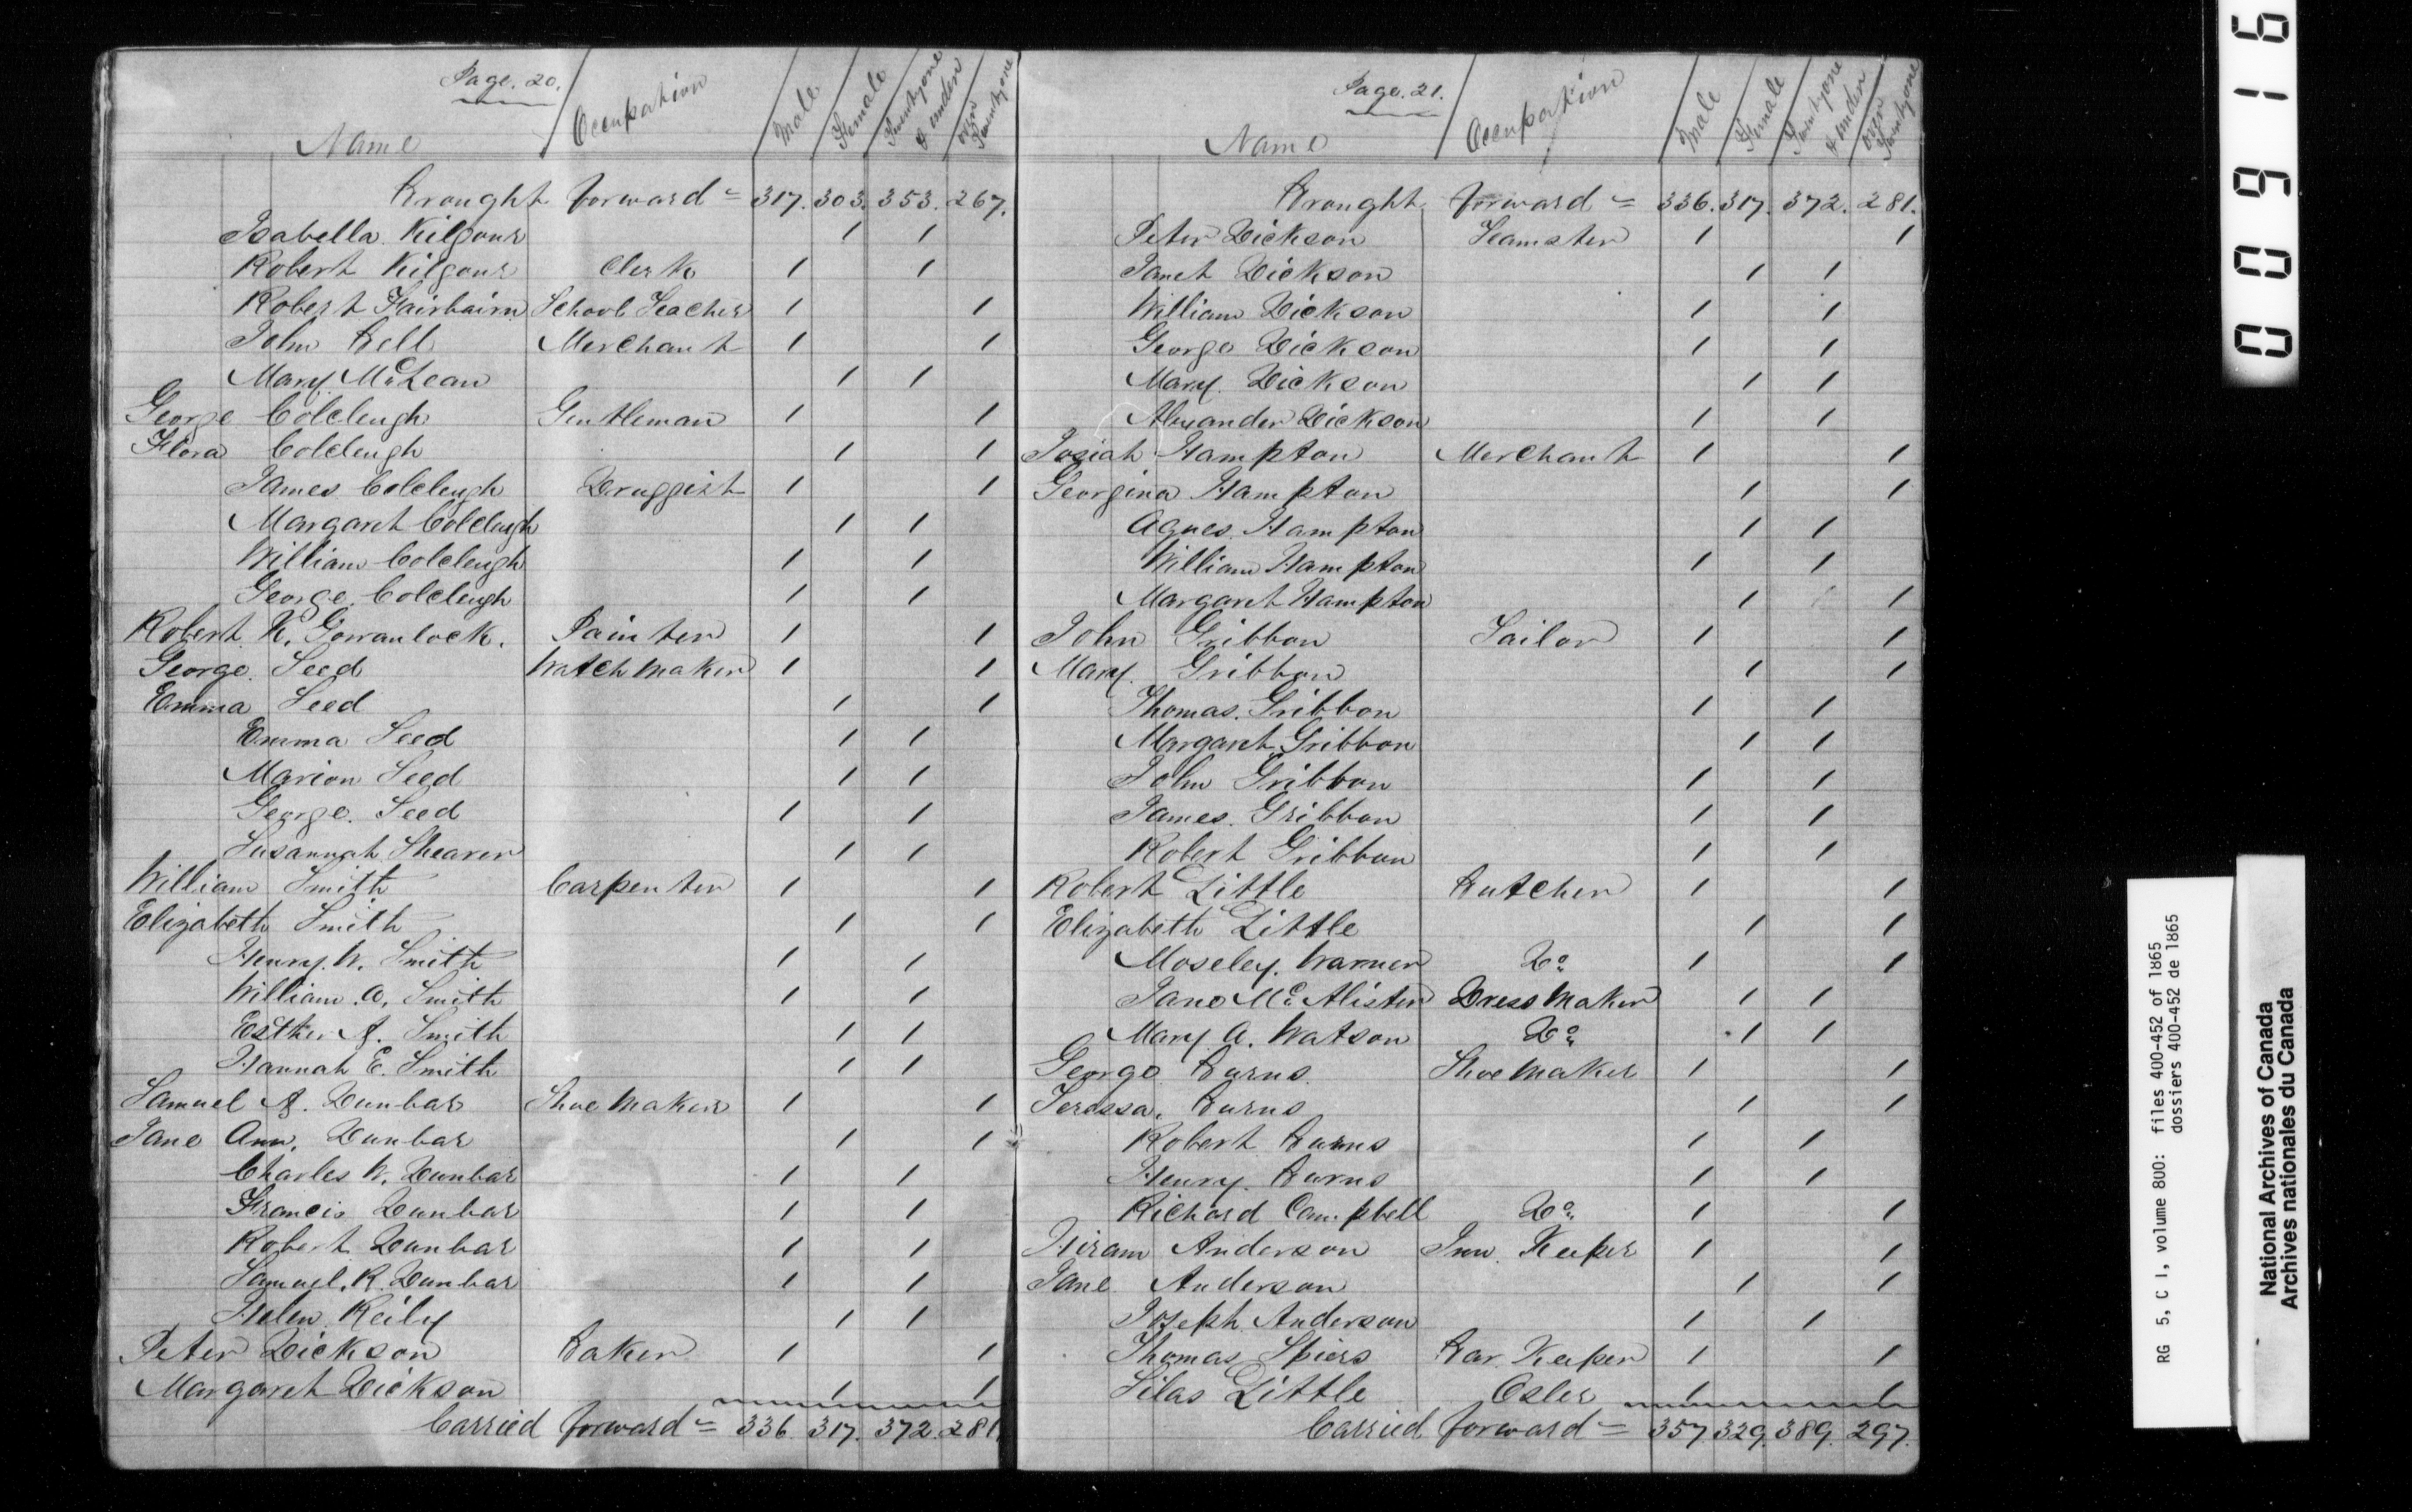 Page. 20.
Name Occupation Male Female Twentyone & under over Twentyone
Brought forward = 317. 303. 353. 267.
Isabella Kilgour 1 1
Robert Kilgour Clerk 1 1
Robert Fairbairn School Teacher 1 1
John Bell Merchant 1 1
Mary McLean 1 1
George Colcleugh Gentleman 1 1
Flora Colcleugh 1 1
James Colcleugh Druggist 1 1
Margaret Colcleugh 1 1
William Colcleugh 1 1
George Colcleugh 1 1
Robert K. Gowanlock. Painter 1 1
George Seed Watch Maker 1 1
Emma Seed 1 1
Emma Seed 1 1
Marion Seed 1 1
George. Seed 1 1
Susannah Shearer 1 1
William Smith Carpenter 1 1
Elizabeth Smith 1 1
Henry. W. Smith 1 1
William. A. Smith 1 1
Esther A. Smith 1 1
Hannah E. Smith 1 1
Samuel A. Dunbar Shoe Maker 1 1
Jane Ann. Dunbar 1 1
Charles W. Dunbar 1 1
Francis Dunbar 1 1
Robert Dunbar 1 1
Samuel. R. Dunbar 1 1
Helen Reily 1 1
Peter Dickson Baker 1 1
Margaret Dickson 1 1
Carried forward = 336 317. 372. 281.
Page. 21.
Name Occupation Male Female Twentyone & under over Twentyone
Brought forward = 336. 317. 372. 281.
Peter Dickson Teamster 1 1
Janet Dickson 1 1
William Dickson 1 1
George Dickson 1 1
Mary Dickson 1 1
Alexander Dickson 1 1
Josiah Hampton Merchant 1 1
Georgina Hampton 1 1
Agnes Hampton 1 1
William Hampton 1 1
Margaret Hampton 1 1
John Gribbon Sailor 1 1
Mary Gribbon 1 1
Thomas. Gribbon 1 1
Margaret Gribbon 1 1
John Gribbon 1 1
James. Gribbon 1 1
Robert Gribbon 1 1
Robert Little Butcher 1 1
Elizabeth Little 1 1
Moseley. Warner Do 1 1
Jane McAlister Dress Maker 1 1
Mary A. Watson Do 1 1
George Burns Shoe Maker 1 1
Teressa. Burns 1 1
Robert Burns 1 1
Henry Burns 1 1
Richard Campbell Do 1 1
Hiram Anderson Inn Keeper 1 1
Jane Anderson 1 1
Joseph Anderson 1 1
Thomas Spiers Bar Keeper 1 1
Silas Little Osler 1 1
Carried forward = 357. 329. 389. 297.
00916
RG 5, C 1, volume 800: files 400-452 of 1865
dossiers 400-452 de 1865
National Archives of Canada
Archives nationales du Canada